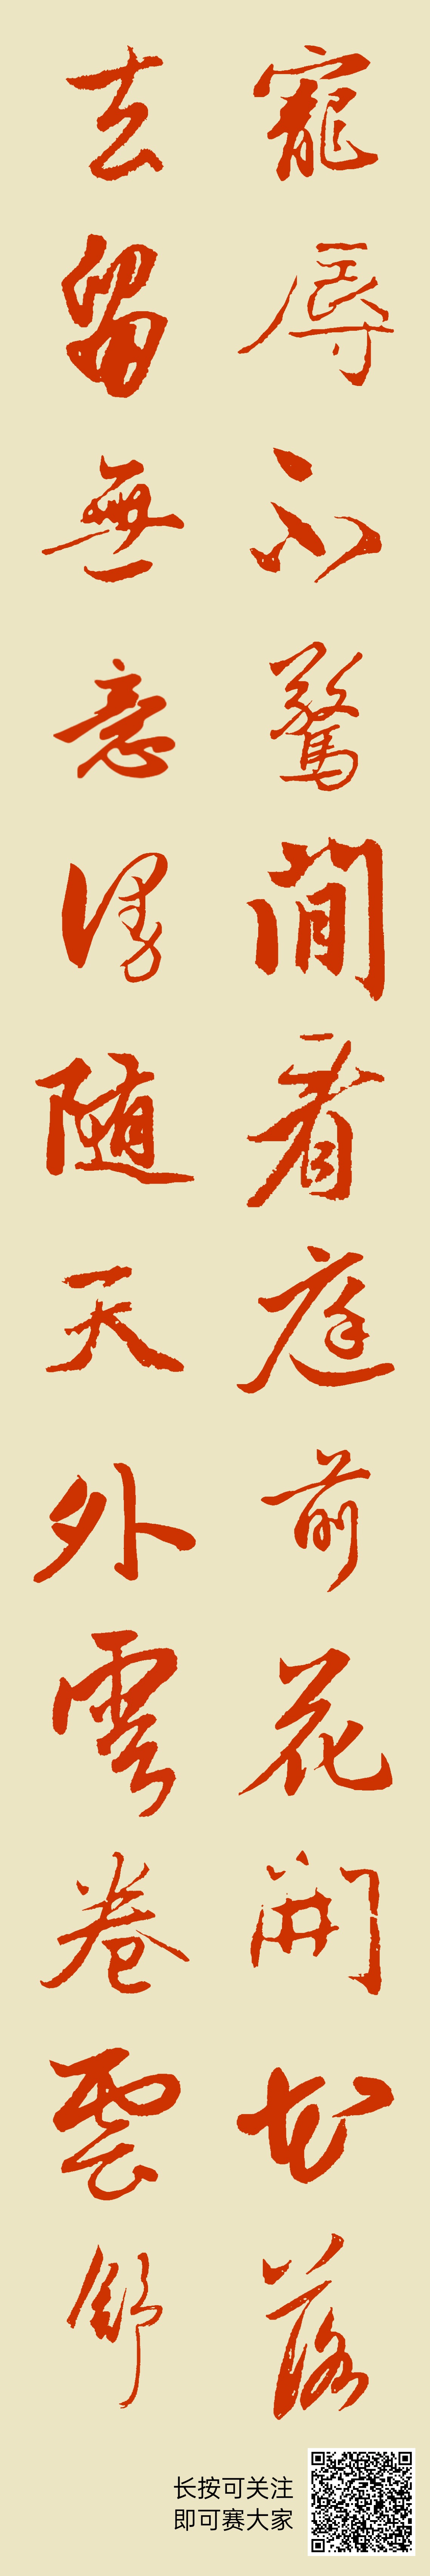 寵辱不驚閒看庭前花開花落
去留無意漫随天外雲卷雲舒
长按可关注
即可赛大家